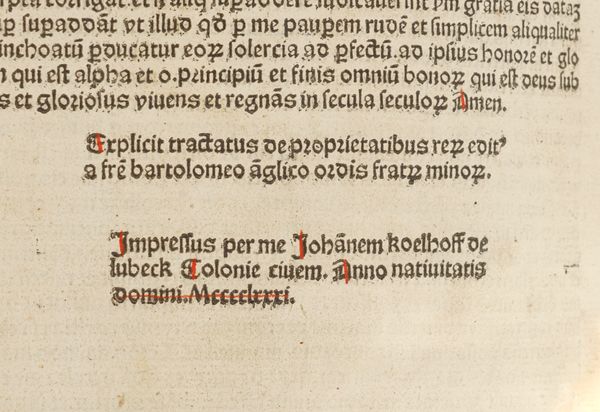 corrigat. et si aliqͥ suꝑaddere iudicauerint ꝓm gratiā eis dataꝫ
suꝑaddāt vt illud qḋ ꝑ me pauꝑem rudē et simplicem aliqualiter
inchoatū ꝑducatur eoꝝ solercia ad ꝑfectū. ad ipsius honorē et glo
qui est alpha et o. principiū et finis omniū bonoꝝ qui est deus sub
s et gloriosus viuens et regnās in secula seculoꝝ Amen.
Explicit tractatus de proprietatibus reꝝ edit⁹
a frē bartolomeo āglico ordīs fratꝝ minoꝝ.
Impressus per me Johānem koelhoff de
lubeck Colonie ciuem. Anno natiuitatis
domini. Mcccclxxxi.